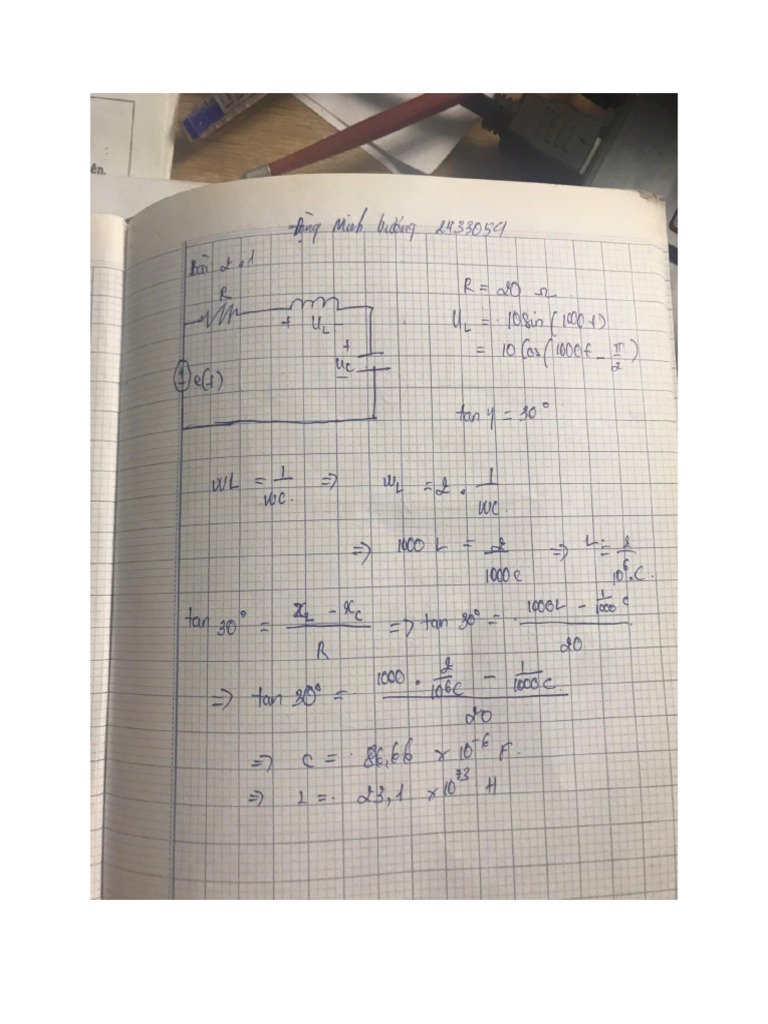 ên.
Đặng Minh Vương 2433059
Bài 2.1
R
+ U_L -
+
U_C
-
e(t)
R = 20 Ω
U_L = 10 sin (1000t)
= 10 Cos (1000t - π/2)
tan φ = 30°
WL = 1/WC => W_L = 2 . 1/WC
=> 1000 L = 2/1000C => L = 2/10^6.C.
tan 30° = (x_L - x_C)/R => tan 30° = (1000L - 1/1000 C)/20
=> tan 30° = (1000 . 2/10^6C - 1/1000C)/20
=> C = 86,66 x 10^-6 F.
=> L = 23,1 x 10^-3 H